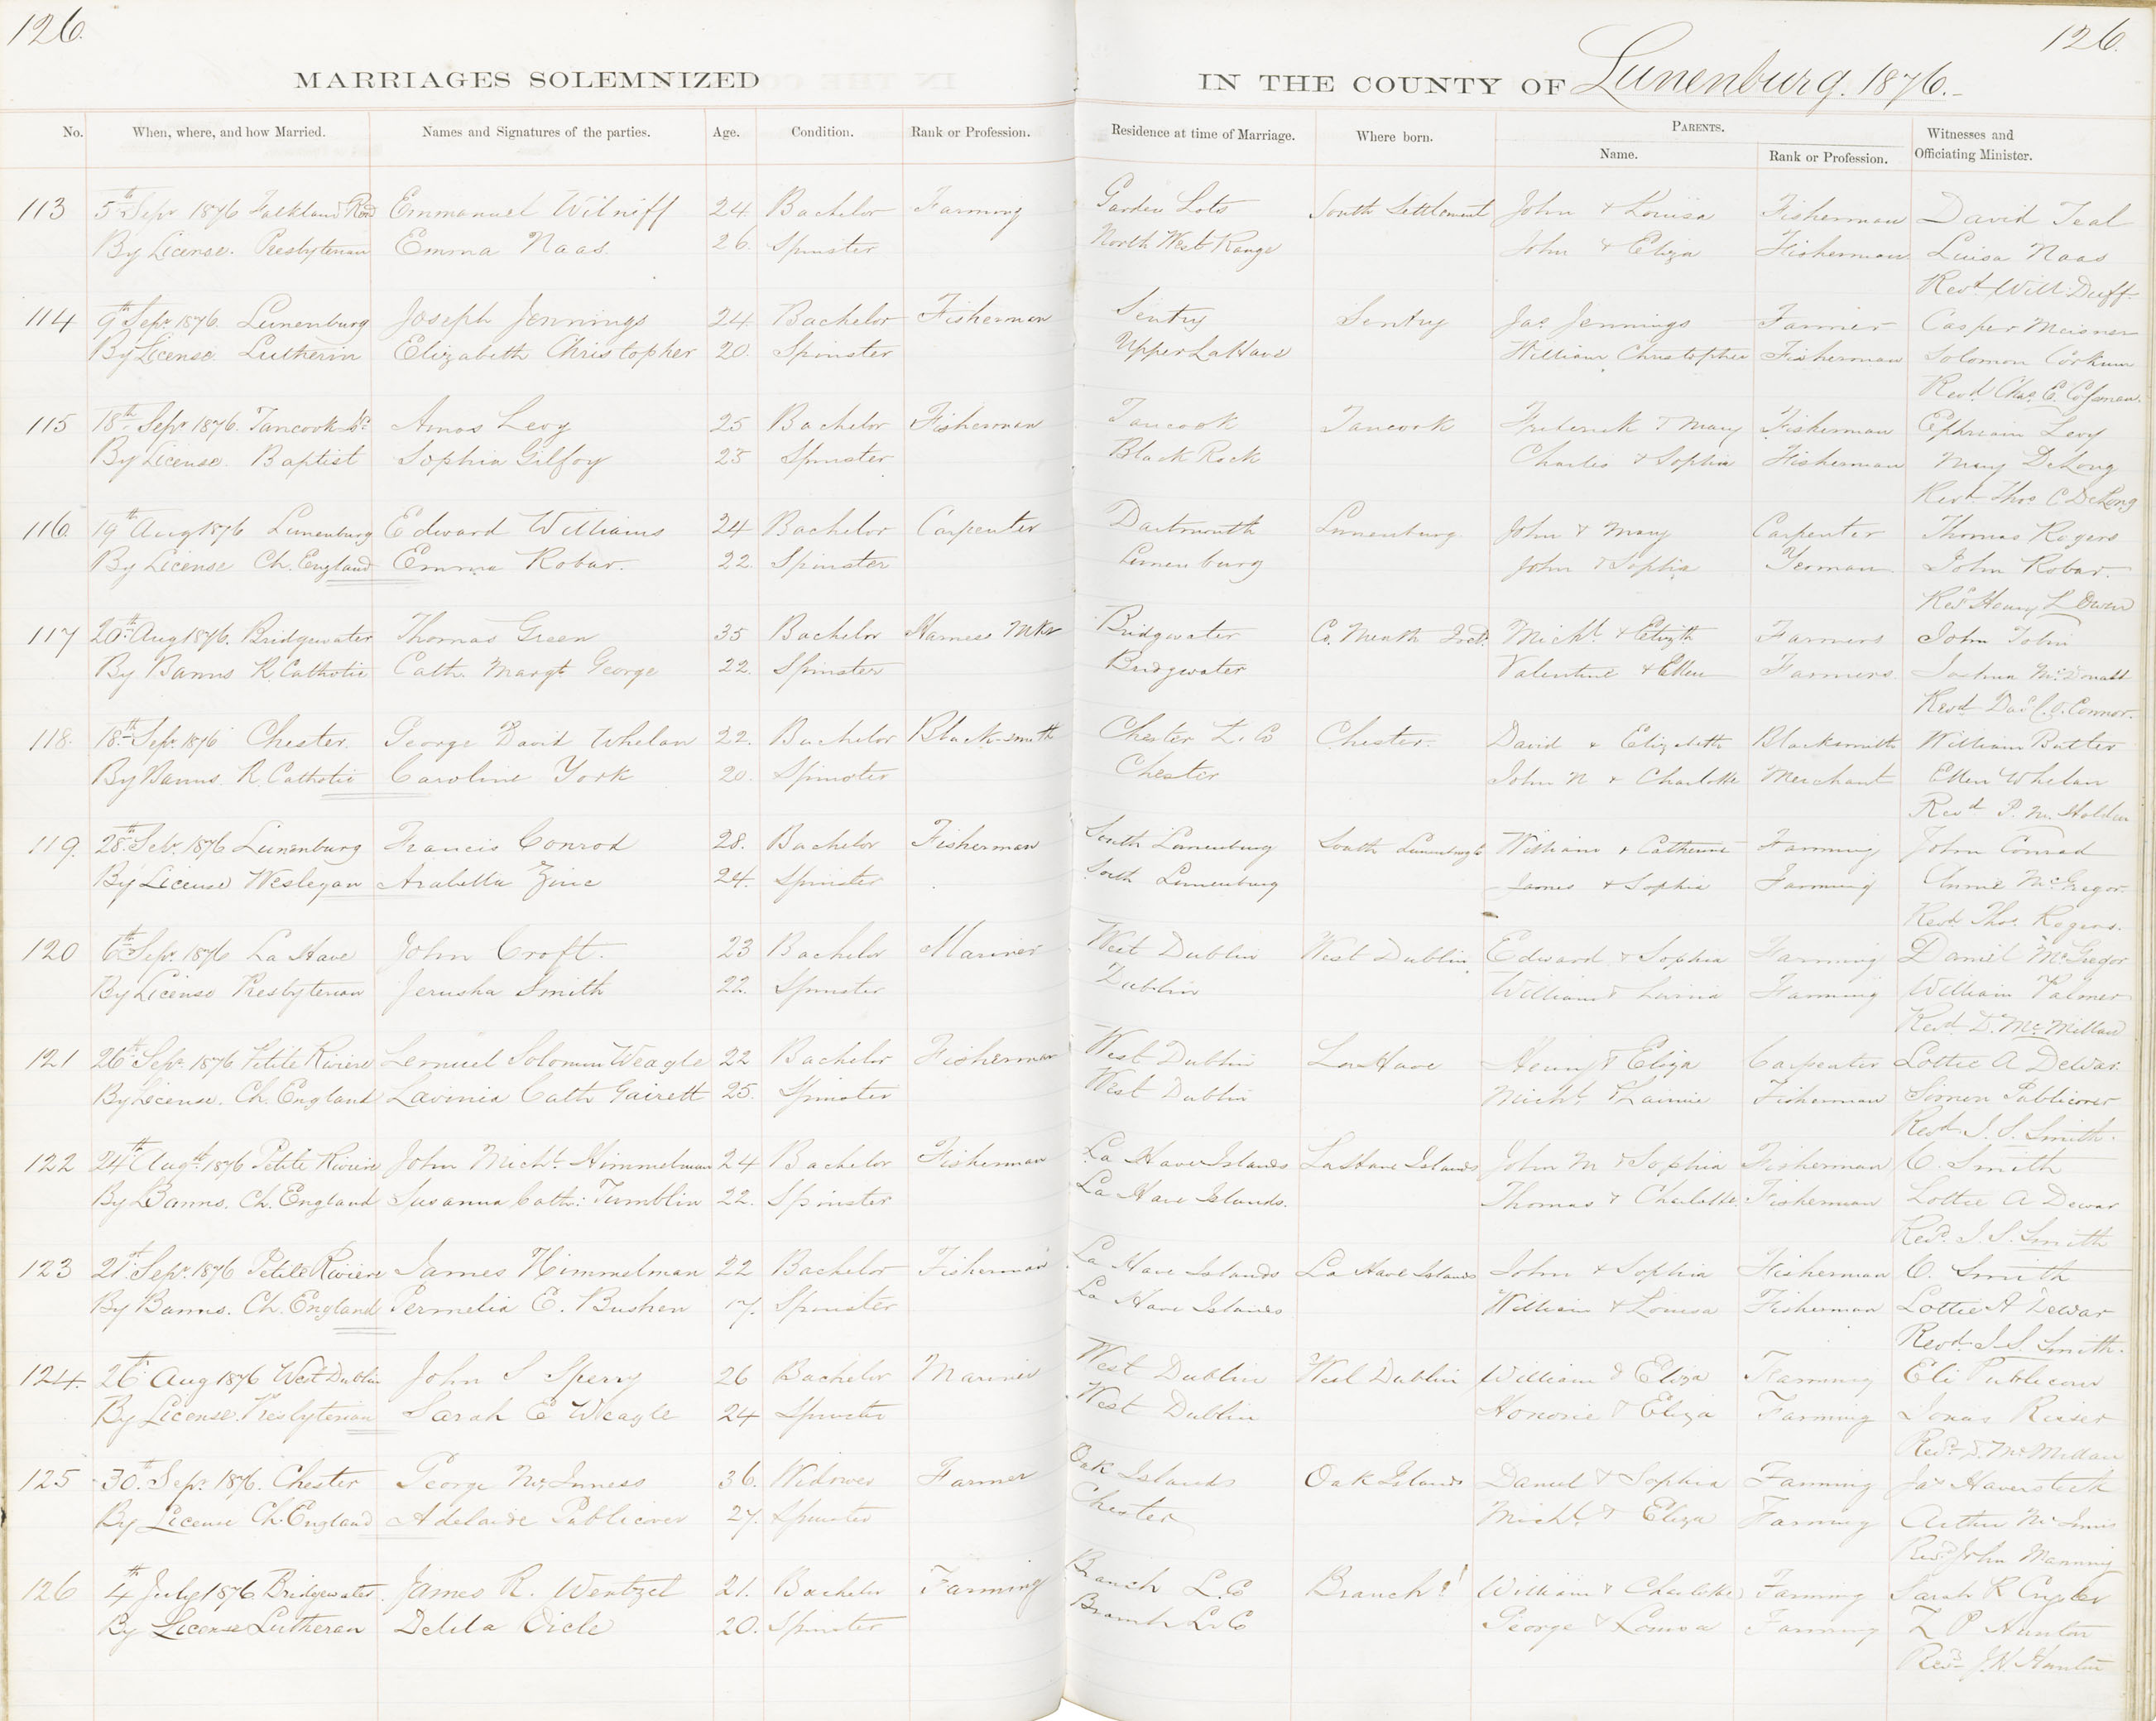 126. 126.
MARRIAGES SOLEMNIZED IN THE COUNTY OF Lunenburg. 1876.
No. When, where, and how Married. Names and Signatures of the parties. Age. Condition. Rank or Profession. Residence at time of Marriage. Where born. PARENTS. Name. Rank or Profession. Witnesses and Officiating Minister.
113 5th Sepr 1876 Falkland Road Emmanuel Wilniff 24 Bachelor Farming Garden Lots South Settlement John & Louisa Fisherman David Teal
By License. Presbyterian Emma Naas. 26. Spinster North West Range John & Eliza Fisherman Luisa Naas
Revd Will. Duff.
114 9th Sepr 1876. Lunenburg Joseph Jennings 24 Bachelor Fisherman Sentry Sentry Jas Jennings Farmer Casper Meisner
By License. Lutherin Elizabeth Christopher 20. Spinster Upper LaHave William Christopher Fisherman Solomon Corkum
Revd Chas. E. Cossman.
115 18th Sepr 1876. Tancook Amos Levy 25 Bachelor Fisherman Tancook Tancook Frederick & Mary Fisherman Ephriam Levy
By License. Baptist Sophia Gilfoy 23 Spinster Black Rock Charles & Sophia Fisherman Mary DeLong
Revd Thos C DeLong
116. 19th Aug 1876 Lunenburg Edward Williams 24 Bachelor Carpenter Dartmouth Lunenburg. John & Mary Carpenter Thomas Rogers
By License Ch. England Emma Robar. 22. Spinster Lunenburg John & Sophia Yeoman John Robar.
Revd Henry L Owen
117 20th Aug 1876. Bridgewater Thomas Green 35 Bachelor Harness Mkr Bridgwater Co. Meath Ired. Michl & Elizth Farmers John Tobin
By Banns R. Catholic Cath. Margt George 22. Spinster Bridgwater Valentine & Ellen Farmers Joshua McDonald
Revd O.Connor.
118. 18th Sepr 1876 Chester. George David Whelan 22. Bachelor Black-smith Chester L. Co Chester. David & Elizabeth Blacksmith William Butler
By Banns. R. Catholic Caroline York 20. Spinster Chester John N & Charlotte Merchant Ellen Whelan
Revd P. M. Holden
119. 28th Sepr. 1876 Lunenburg Francis Conrod 28. Bachelor Fisherman South Lunenburg South Lunenburgh William & Catherine Farming John Conrad
By License Wesleyan Arabella Zinc 24. Spinster South Lunenburg James & Sophia Farming Annie McGregor.
Revd Thos. Rogers.
120 6th Sepr. 1876 La Have John Croft. 23 Bachelor Mariner West Dublin West Dublin Edward & Sophia Farming Daniel McGregor
By License Presbyterian Jerusha Smith 22. Spinster Dublin William & Farming William Palmer
Revd D. McMillan
121 26th Sepr. 1876 Petite Riviere Lemuel Solomon Weagle 22 Bachelor Fisherman West Dublin LaHave Henry & Eliza Carpenter Lottie A Dewar.
By License. Ch. England Lavinia Cath Gairett 25. Spinster West Dublin Michl. & Fisherman Simon Publicover
Revd J. S. Smith.
122 24th Augst 1876 Petite Riviere John Michl. Himmelman 24 Bachelor Fisherman La Have Islands LaHave Islands John M & Sophia Fisherman C. Smith
By Banns. Ch. England Susanna Cath: Tumblin 22. Spinster La Have Islands. Thomas & Charlotte Fisherman Lottie A Dewar
Revd. J. S. Smith
123 21st Sepr. 1876 Petite Riviere James Himmelman 22 Bachelor Fisherman La Have Islands La Have Islands John & Sophia Fisherman C. Smith
By Banns. Ch. England Permelia E. Bushen 17. Spinster La Have Islands William & Louisa Fisherman Lottie A Dewar
Revd J. S. Smith.
124. 26th Aug 1876 West Dublin John S Sperry 26 Bachelor Mariner West Dublin West Dublin William & Eliza Farming Eli Publicover
By License. Presbyterian Sarah E Weagle 24 Spinster West Dublin & Eliza Farming Jonas
Revd D. McMillan
125 30th Sepr. 1876. Chester George McInness 36. Widower Farmer Oak Islands Oak Islands Daniel & Sophia Farming Jas Haverstock
By License Ch. England Adelaide Publicover 27. Spinster Chester Michl. & Eliza Farming Arthur McInnis
Revd John Manning
126 4th July 1876 Bridgewater. James R. Wentzel 21. Bachelor Farming Branch L.Co Branch William & Charlotte Farming Sarah R
By License Lutheran Delila Oicle 20. Spinster Branch L.Co George & Louisa Farming Z P Hunton
Revd